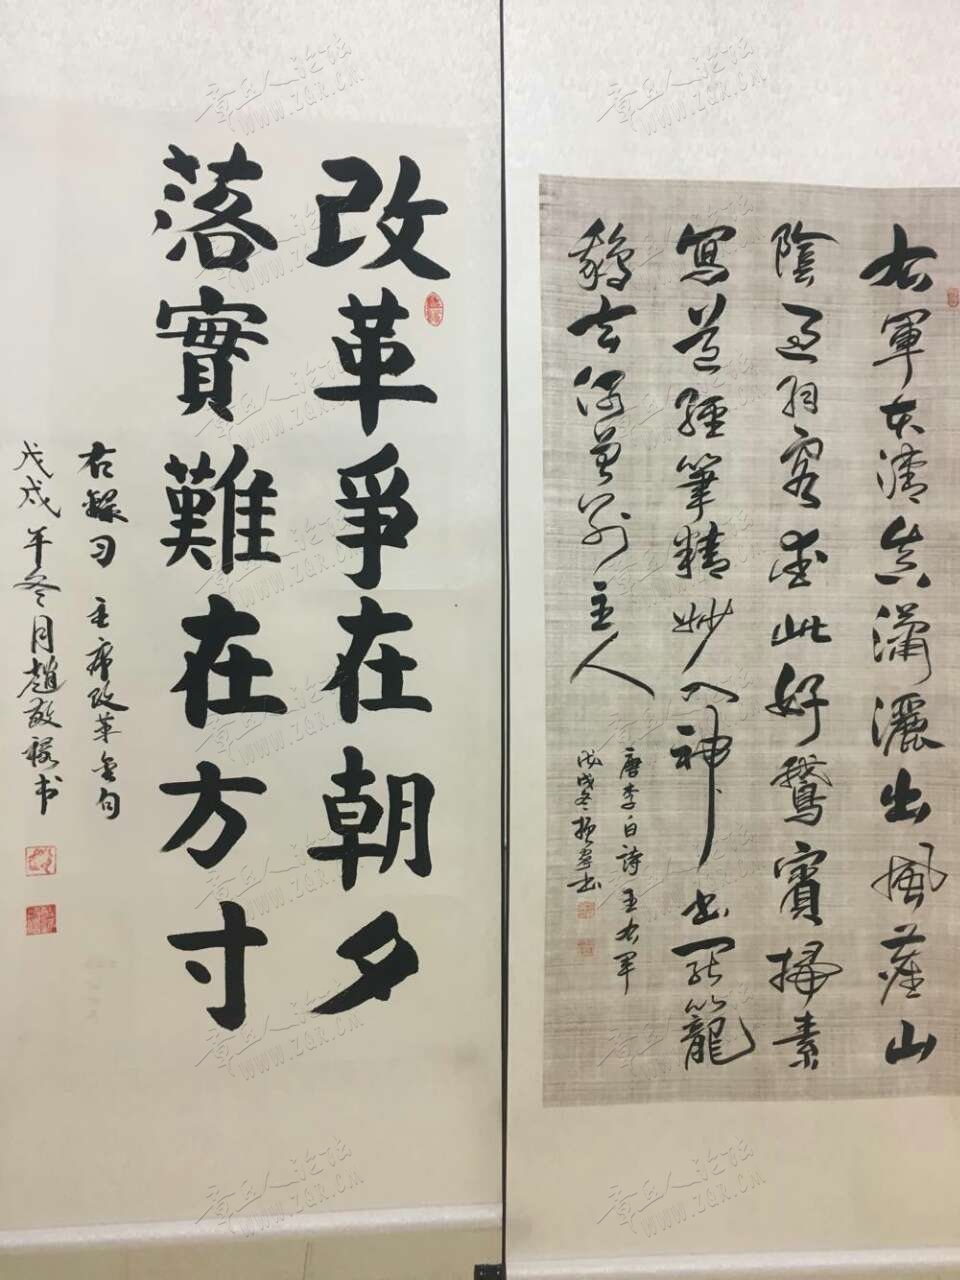 右軍本清真瀟灑出風塵山
陰過羽客愛此好鵝賓掃素
寫道經筆精妙入神書罷籠
鵝去何曾別主人
唐李白詩王右軍
戊戌冬書
改革爭在朝夕
落實難在方寸
右錄习主席改革金句
戊戌年冬月趙敬书
章丘人论坛
www.ZQR.CN